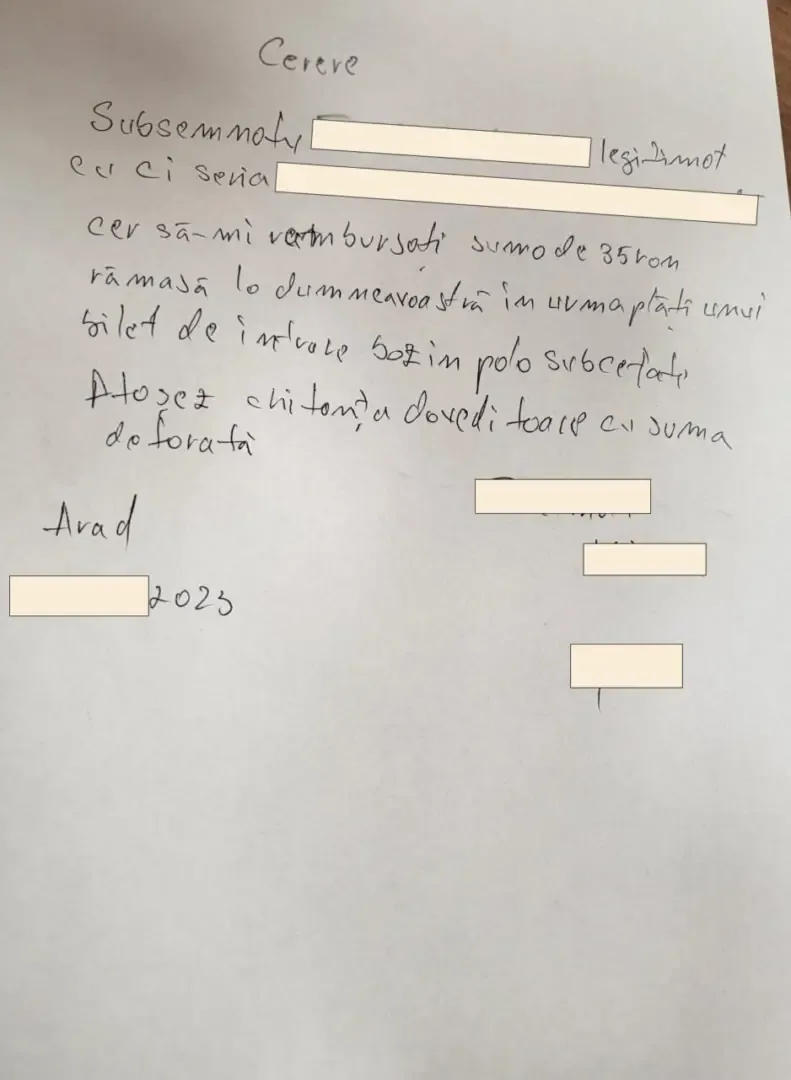 Cerere
Subsemnatu legitimat
cu ci seria
cer să-mi rambursați suma de 35 ron
rămasă la dumneavoastră în urma plăti unui
bilet de intrare bazin polo subcetate
Atașez chitanța doveditoare cu suma
deforată
Arad
2023